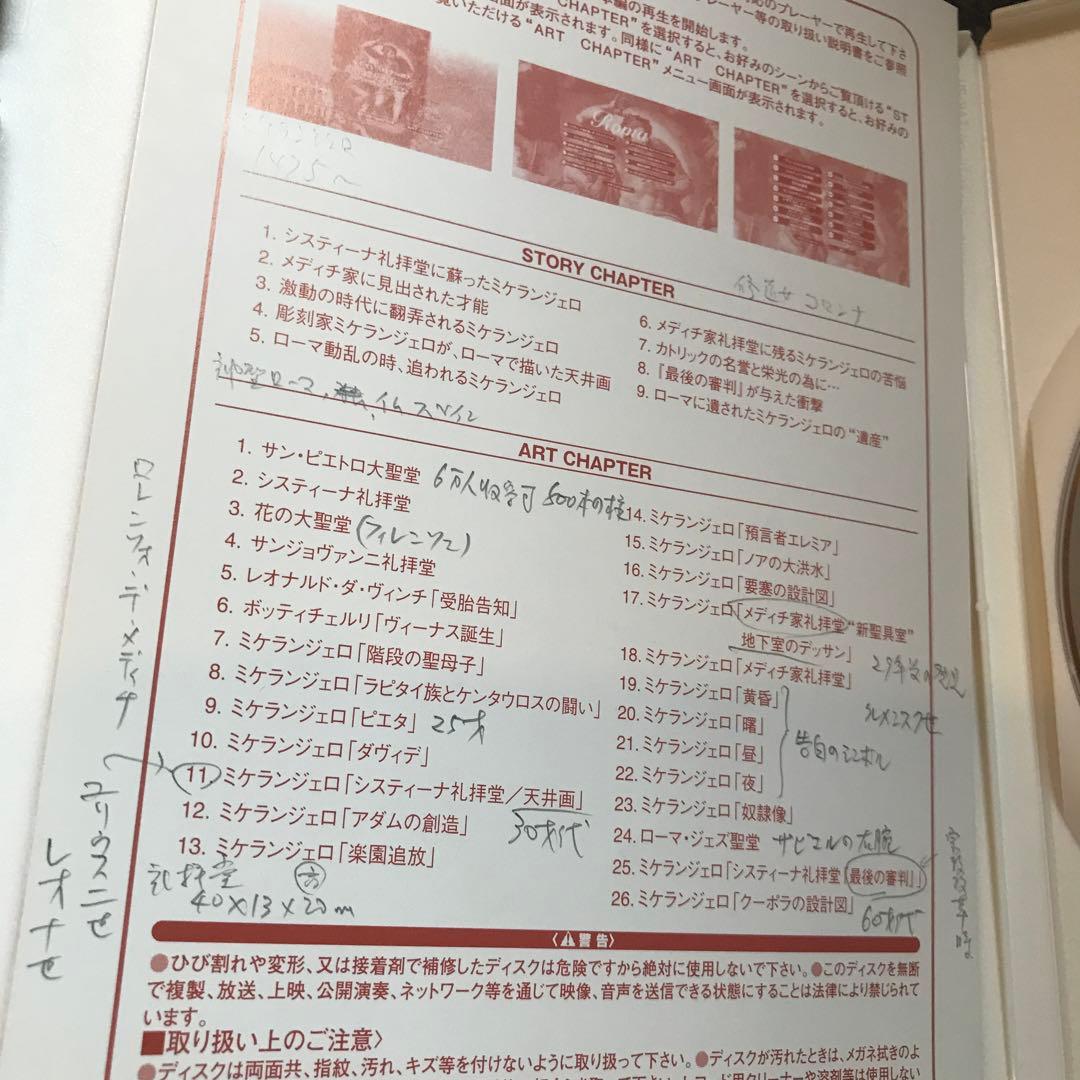 本編の再生を開始します。
CHAPTER"を選択すると、お好みのシーンからご覧頂ける"ST
画面が表示されます。同様に"ART CHAPTER"を選択すると、お好みの
覧いただける"ART CHAPTER"メニュー画面が表示されます。
対応のプレーヤーで再生して下さ
レーヤー等の取り扱い説明書をご参照
Roma
1475〜
STORY CHAPTER
1. システィーナ礼拝堂に蘇ったミケランジェロ
2. メディチ家に見出された才能
3. 激動の時代に翻弄されるミケランジェロ
4. 彫刻家ミケランジェロが、ローマで描いた天井画
5. ローマ動乱の時、追われるミケランジェロ
修道女 コロンナ
6. メディチ家礼拝堂に残るミケランジェロの苦悩
7. カトリックの名誉と栄光の為に…
8. 『最後の審判』が与えた衝撃
9. ローマに遺されたミケランジェロの“遺産”
神聖ローマ、
スペイン
ART CHAPTER
1. サン・ピエトロ大聖堂 6万人収容可 500本の柱
2. システィーナ礼拝堂
3. 花の大聖堂 (フィレンツェ)
4. サンジョヴァンニ礼拝堂
5. レオナルド・ダ・ヴィンチ「受胎告知」
6. ボッティチェルリ「ヴィーナス誕生」
7. ミケランジェロ「階段の聖母子」
8. ミケランジェロ「ラピタイ族とケンタウロスの闘い」
9. ミケランジェロ「ピエタ」 25才
10. ミケランジェロ「ダヴィデ」
11 ミケランジェロ「システィーナ礼拝堂/天井画」
30才代
12. ミケランジェロ「アダムの創造」
13. ミケランジェロ「楽園追放」
礼拝堂
40×13×20m
14. ミケランジェロ「預言者エレミア」
15. ミケランジェロ「ノアの大洪水」
16. ミケランジェロ「要塞の設計図」
17. ミケランジェロ「メディチ家礼拝堂“新聖具室”
地下室のデッサン」
18. ミケランジェロ「メディチ家礼拝堂」
19. ミケランジェロ「黄昏」
20. ミケランジェロ「曙」
21. ミケランジェロ「昼」
22. ミケランジェロ「夜」
告白のシンボル
クレメンス7世
23. ミケランジェロ「奴隷像」
24. ローマ・ジェズ聖堂 ザビエルの右腕
25. ミケランジェロ「システィーナ礼拝堂「最後の審判」」
26. ミケランジェロ「クーポラの設計図」 60才代
宗教改革時
ロレンツォ・デ・メディチ
ユリウス二世
レオ十世
〈警告〉
●ひび割れや変形、又は接着剤で補修したディスクは危険ですから絶対に使用しないで下さい。●このディスクを無断
で複製、放送、上映、公開演奏、ネットワーク等を通じて映像、音声を送信できる状態にすることは法律により禁じられて
います。
■取り扱い上のご注意〉
●ディスクは両面共、指紋、汚れ、キズ等を付けないように取り扱って下さい。●ディスクが汚れたときは、メガネ拭きのよ